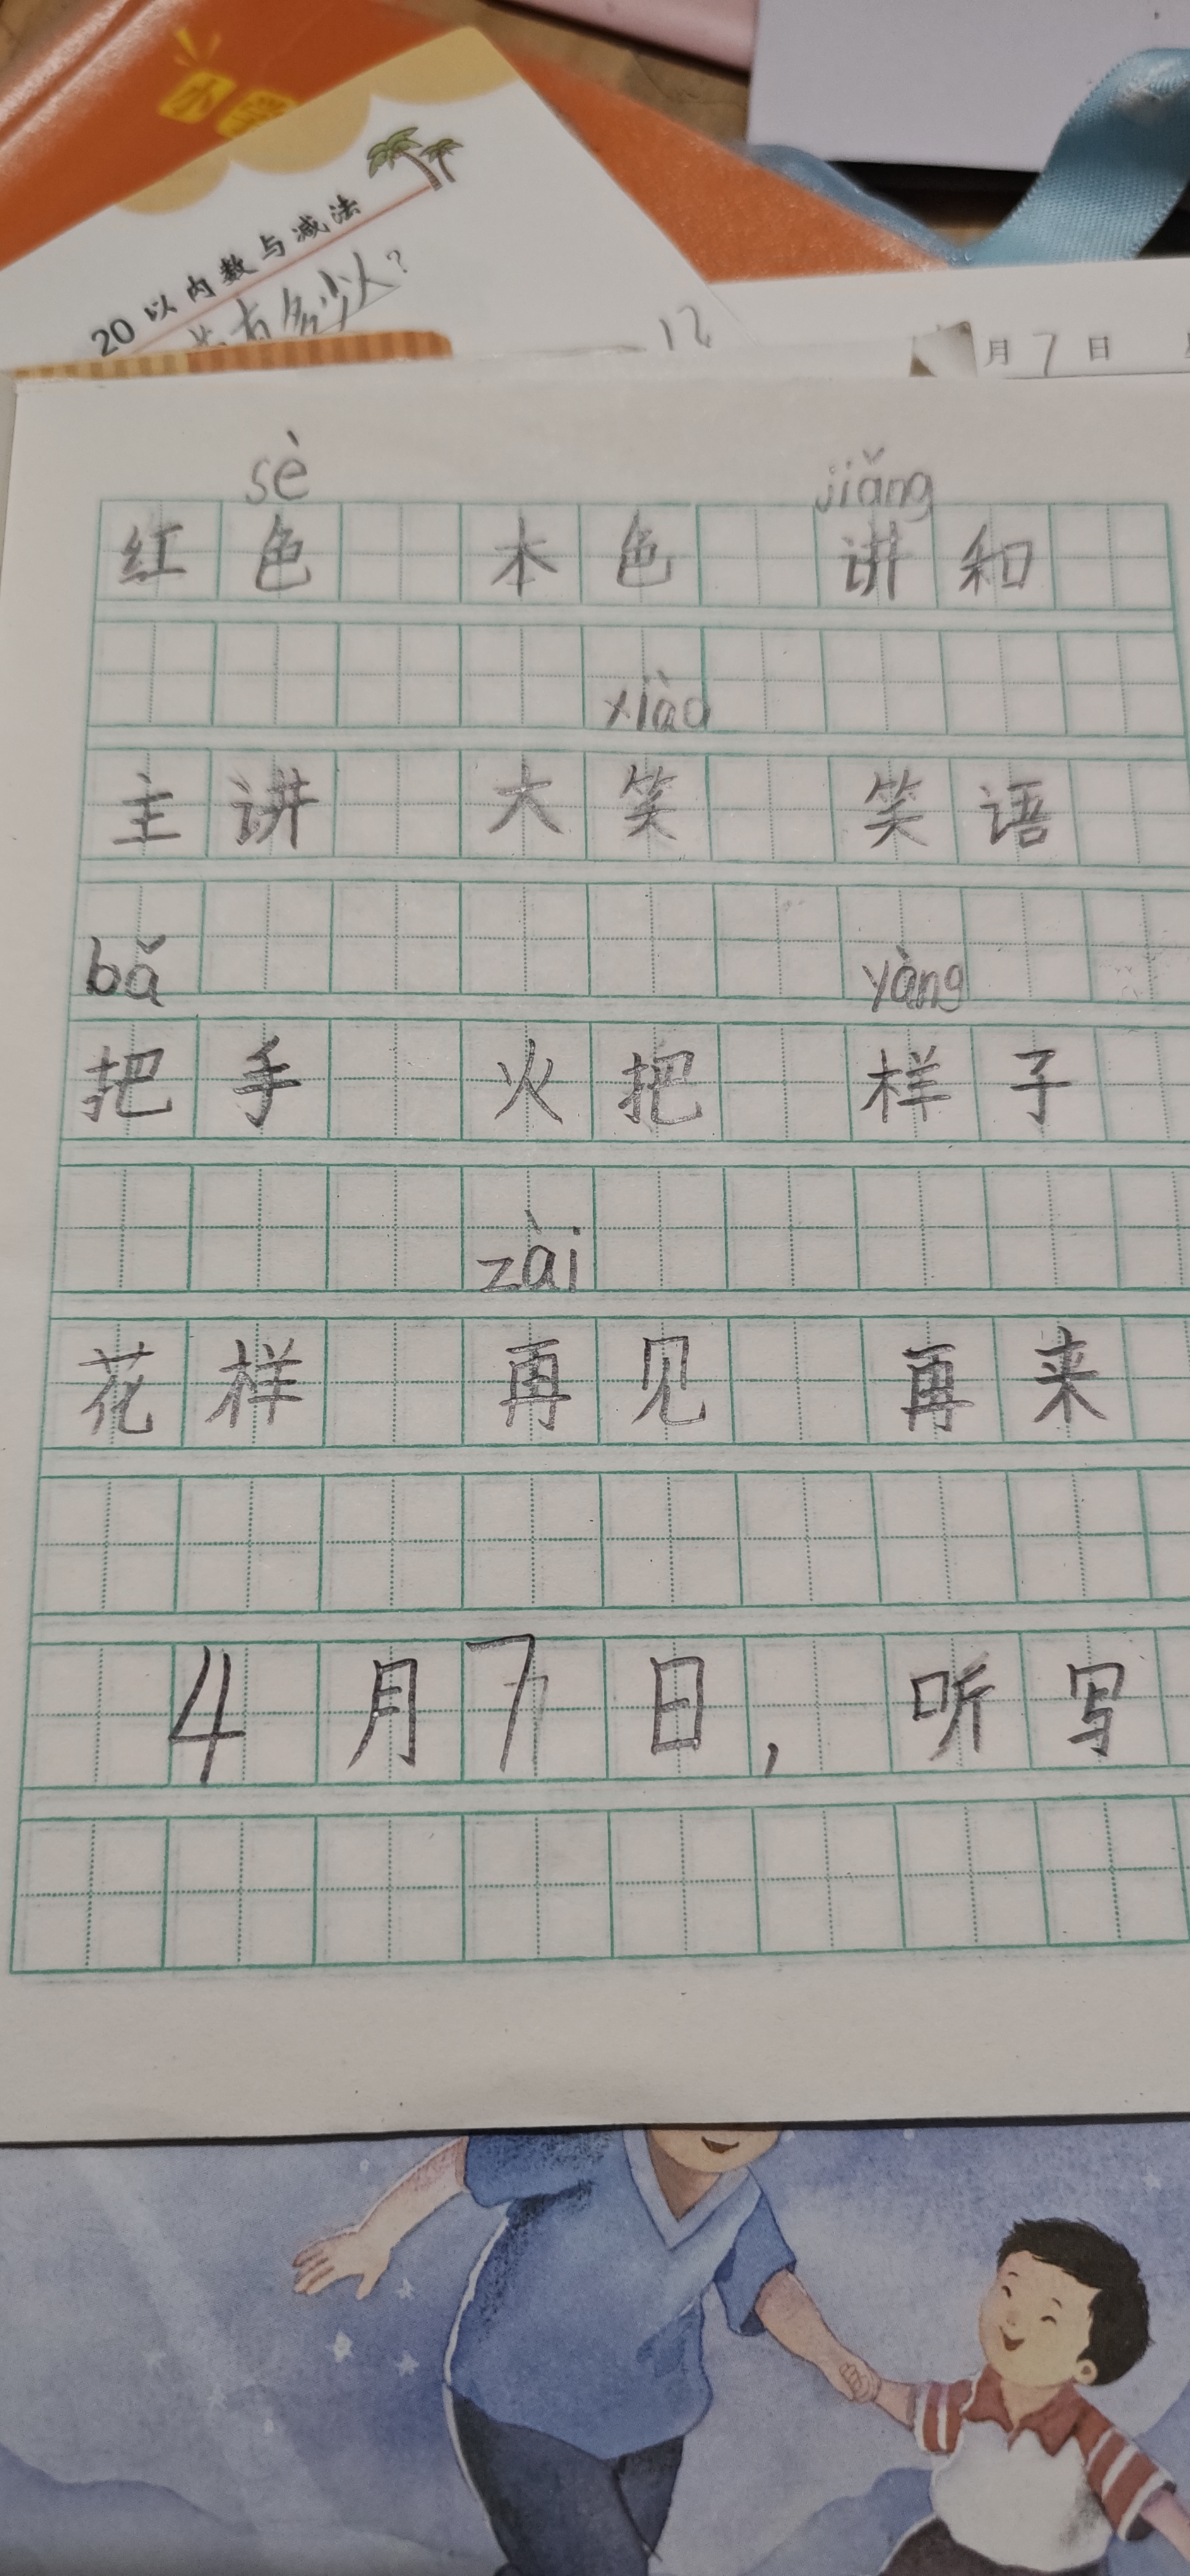 小学
20以内数与减法
有多少人?
12
月7日
sè jiǎng
红色 本色 讲和
xiào
主讲 大笑 笑语
bǎ yàng
把手 火把 样子
zài
花样 再见 再来
4月7日,听写